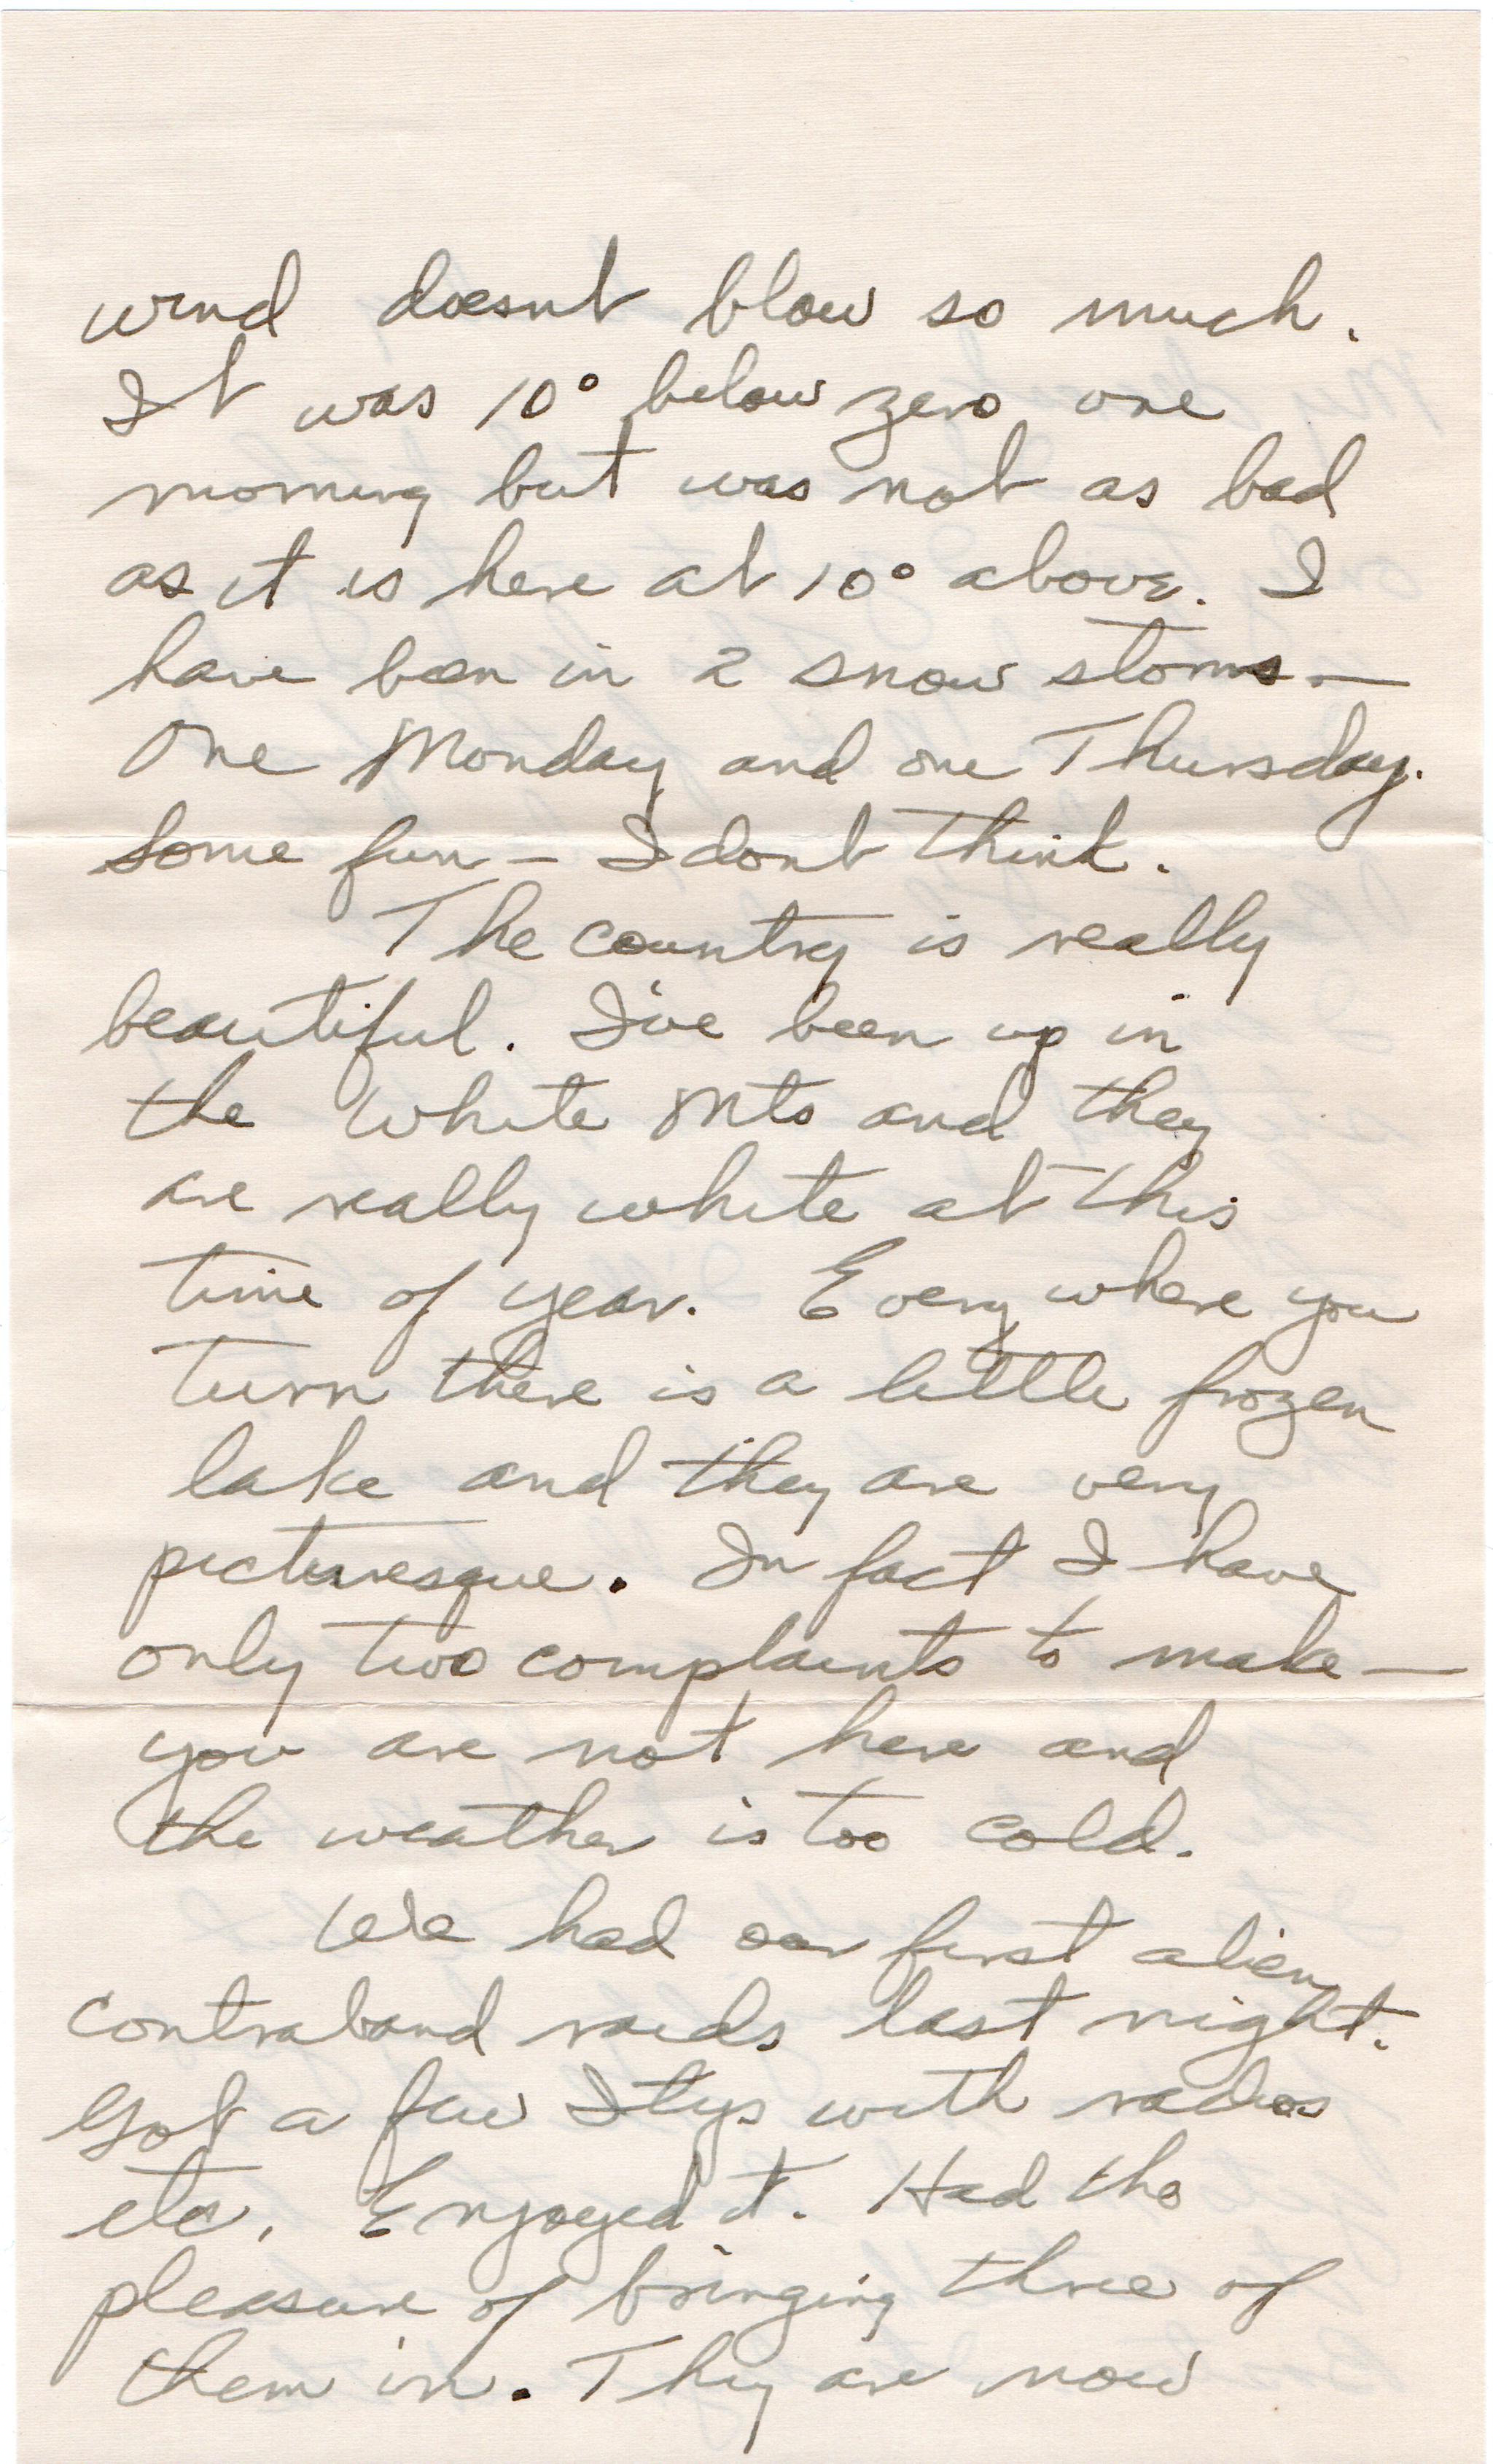 wind doesnt blow so much.
It was 10° below zero one
morning but was not as bad
as it is here at 10° above. I
have been in 2 snow storms —
One Monday and one Thursday.
Some fun — I dont think.
The country is really
beautiful. I've been up in
the White Mts and they
are really white at this
time of year. Every where you
turn there is a little frozen
lake and they are very
picturesque. In fact I have
only two complaints to make —
you are not here and
the weather is too cold.
We had our first alien
contraband raids last night.
Got a few Itys with radios
etc. Enjoyed it. Had the
pleasure of bringing three of
them in. They are now